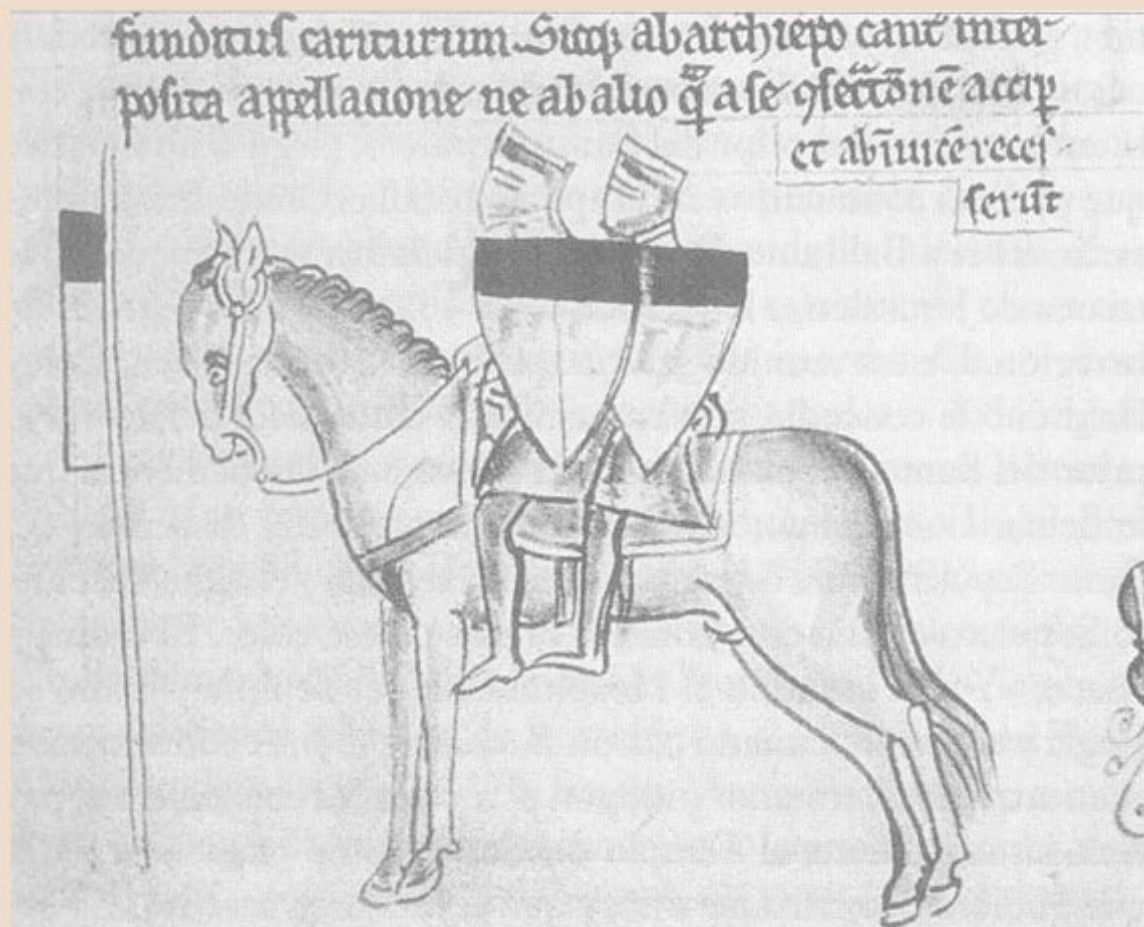 funditus cariturum. Sicq; ab archiepo cant̄ inter
posita appellacione ne ab alio q̄ a se ꝯsecc̄onē
et abīuicē
ferūt